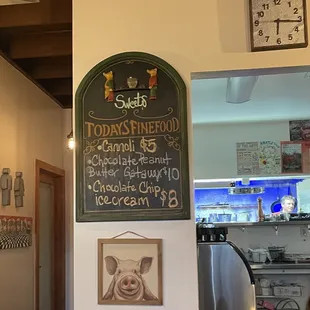 Sweets
TODAYS FINE FOOD
• Cannoli $5
• Chocolate Peanut
Butter Gateaux $10
• Chocolate Chip
ice cream $8